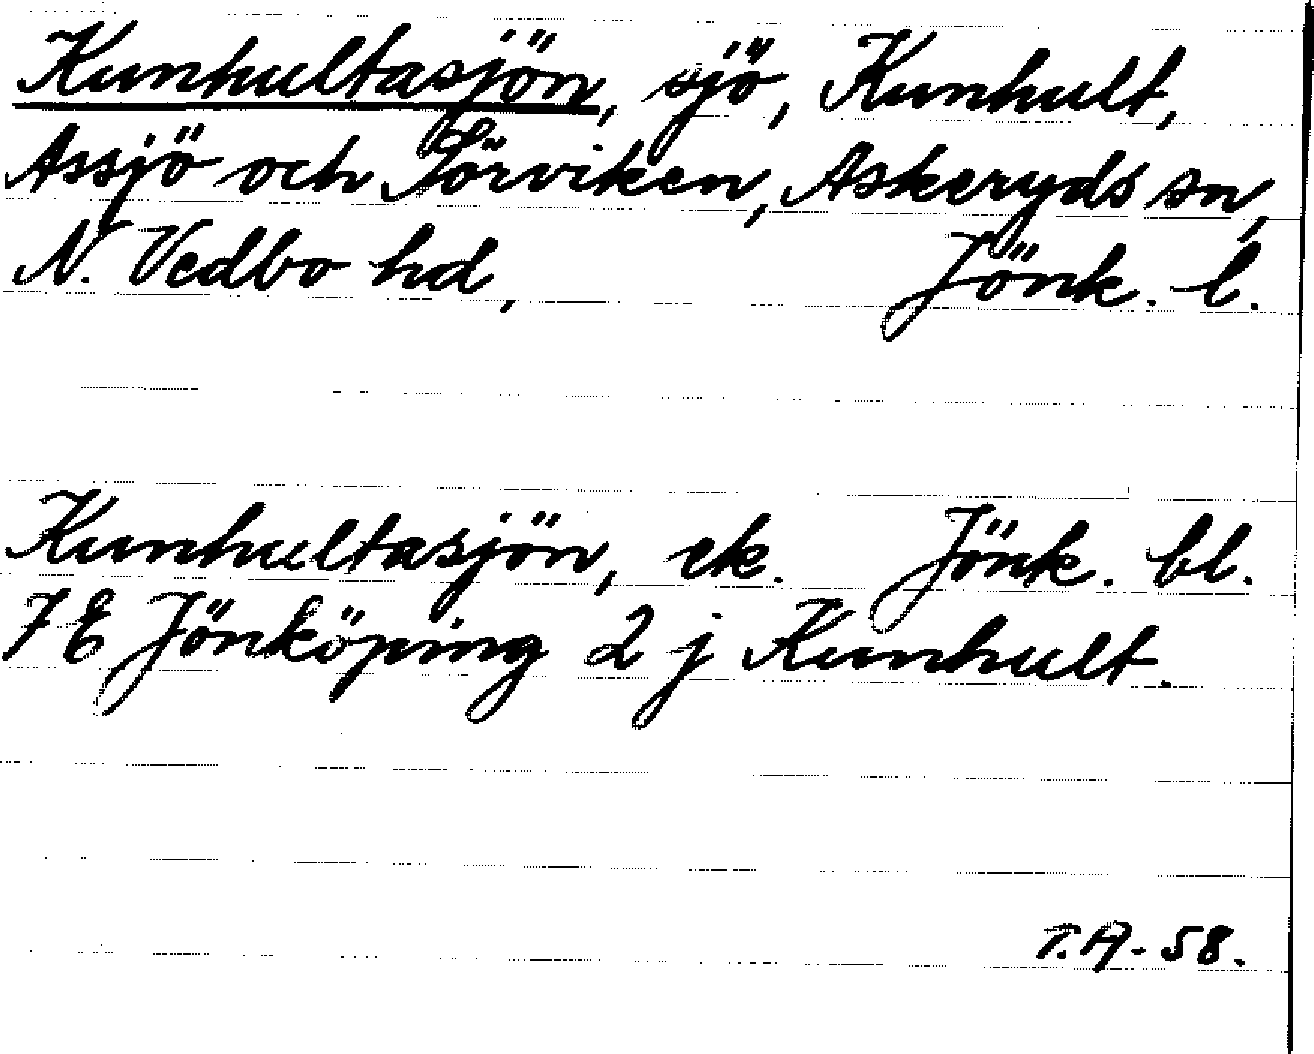 Kunhultasjön, sjö, Kunhult,
Assjö och Sörviken, Askeryds sn,
N. Vedbo hd, Jönk. l.
Kunhultasjön, ek. Jönk. bl.
7E Jönköping 2 j Kunhult.
T.A. 58.